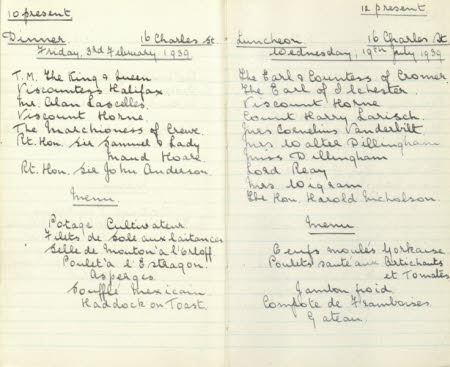 10 present
Dinner 16 Charles St
Friday, 3rd February 1939
T.M. The King & Queen
Viscountess Halifax.
Mr. Alan Lascelles.
Viscount Horne.
The Marchioness of Crewe.
Rt. Hon. Sir Samuel & Lady
Maud Hoare
Rt. Hon. Sir John Anderson.
Menu
Potage Cultivateur
Filets de Sole aux laitances
Selle de Mouton à l'Orloff
Poulet à l'Estragon.
Asperges
Soufflé Mexicain
Haddock on Toast.
12 present
Luncheon 16 Charles St
Wednesday, 19th July 1939
The Earl & Countess of Cromer.
The Earl of Ilchester.
Viscount Horne
Count Harry Larisch.
Mrs Cornelius Vanderbilt
Mrs Walter Dillingham
Miss Dillingham
Lord Reay
Mrs Wigram
The Hon. Harold Nicholson.
Menu
Oeufs moulés Yorkaise
Poulets sauté aux Artichauts
et Tomates
Jambon froid
Compote de Framboises
Gateau.